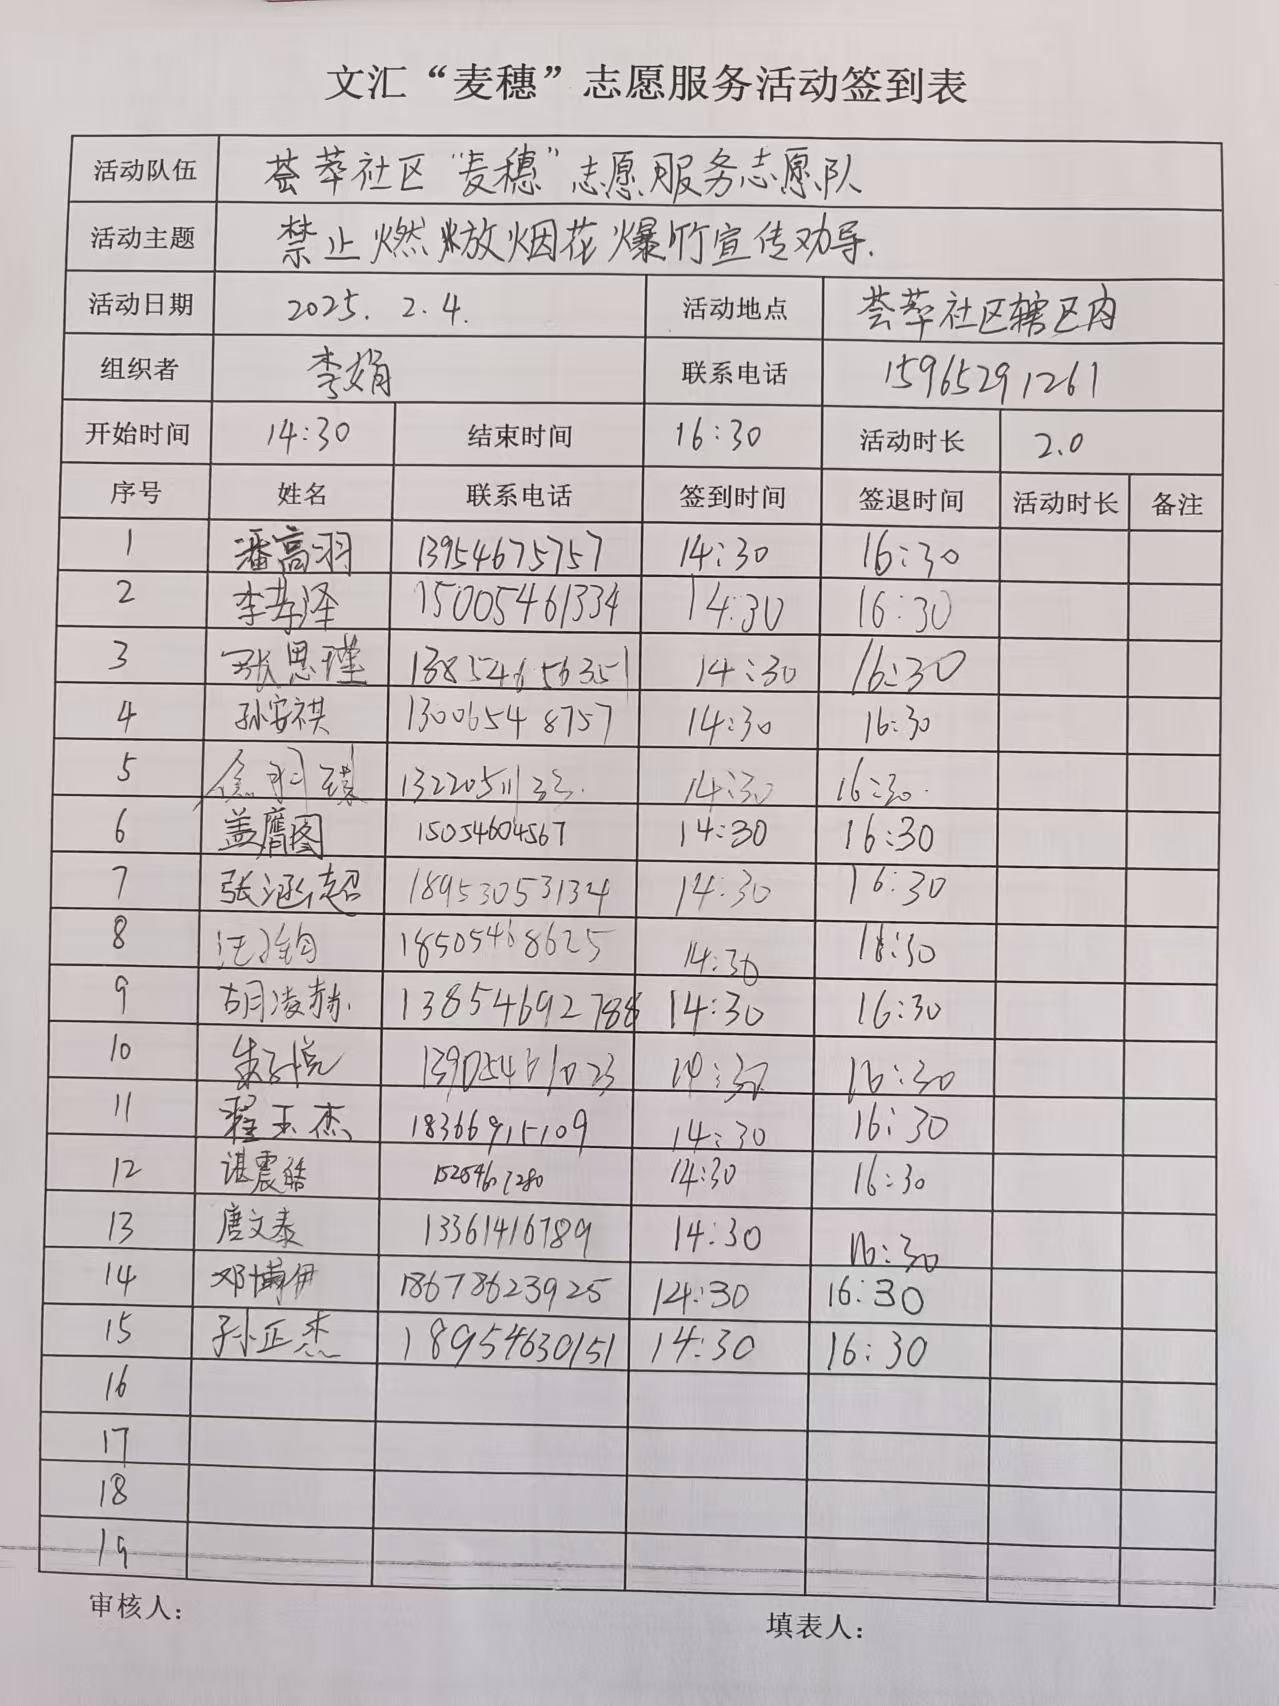 文汇“麦穗”志愿服务活动签到表
活动队伍 荟萃社区“麦穗”志愿服务志愿队
活动主题 禁止燃放烟花爆竹宣传劝导.
活动日期 2025. 2.4. 活动地点 荟萃社区辖区内
组织者 李娟 联系电话 15965291261
开始时间 14:30 结束时间 16:30 活动时长 2.0
序号 姓名 联系电话 签到时间 签退时间 活动时长 备注
1 潘高羽 13954675757 14:30 16:30
2 15005461334 14:30 16:30
3 张思瑾 13854656351 14:30 16:30
4 孙安祺 13006548757 14:30 16:30
5 14:30 16:30.
6 盖鹰图 15054604567 14:30 16:30
7 张涵超 18953053134 14:30 16:30
8 18505468625 14:30 16:30
9 胡凌赫 13854692788 14:30 16:30
10 朱子悦 13905461023 14:30 16:30
11 翟玉杰 18366915109 14:30 16:30
12 谌震皓 14:30 16:30
13 唐文泰 13361416789 14:30 16:30
14 邓博伊 18678623925 14:30 16:30
15 孙正杰 18954630151 14:30 16:30
16
17
18
19
审核人： 填表人：